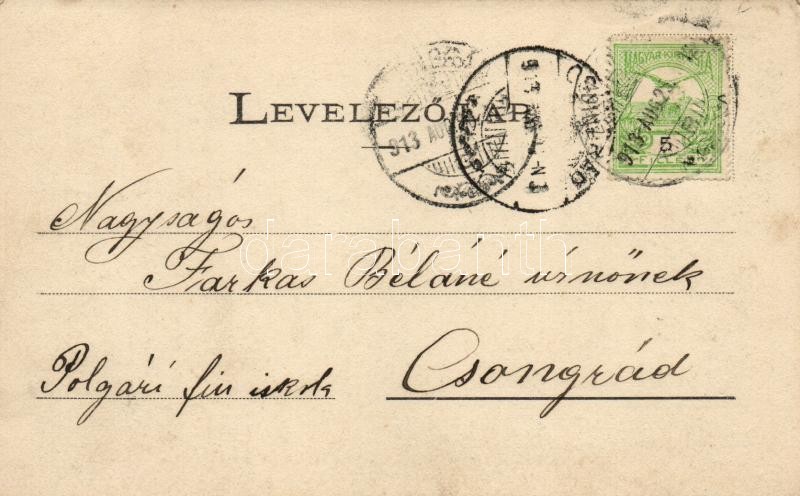 LEVELEZŐ LAP
MAGYAR KIR. POSTA
913 AUG 25
913 AUG
CSONGRÁD
5
Nagyságos
Farkas Béláné úrnőnek
Polgári fiu iskola
Csongrád
darabanth